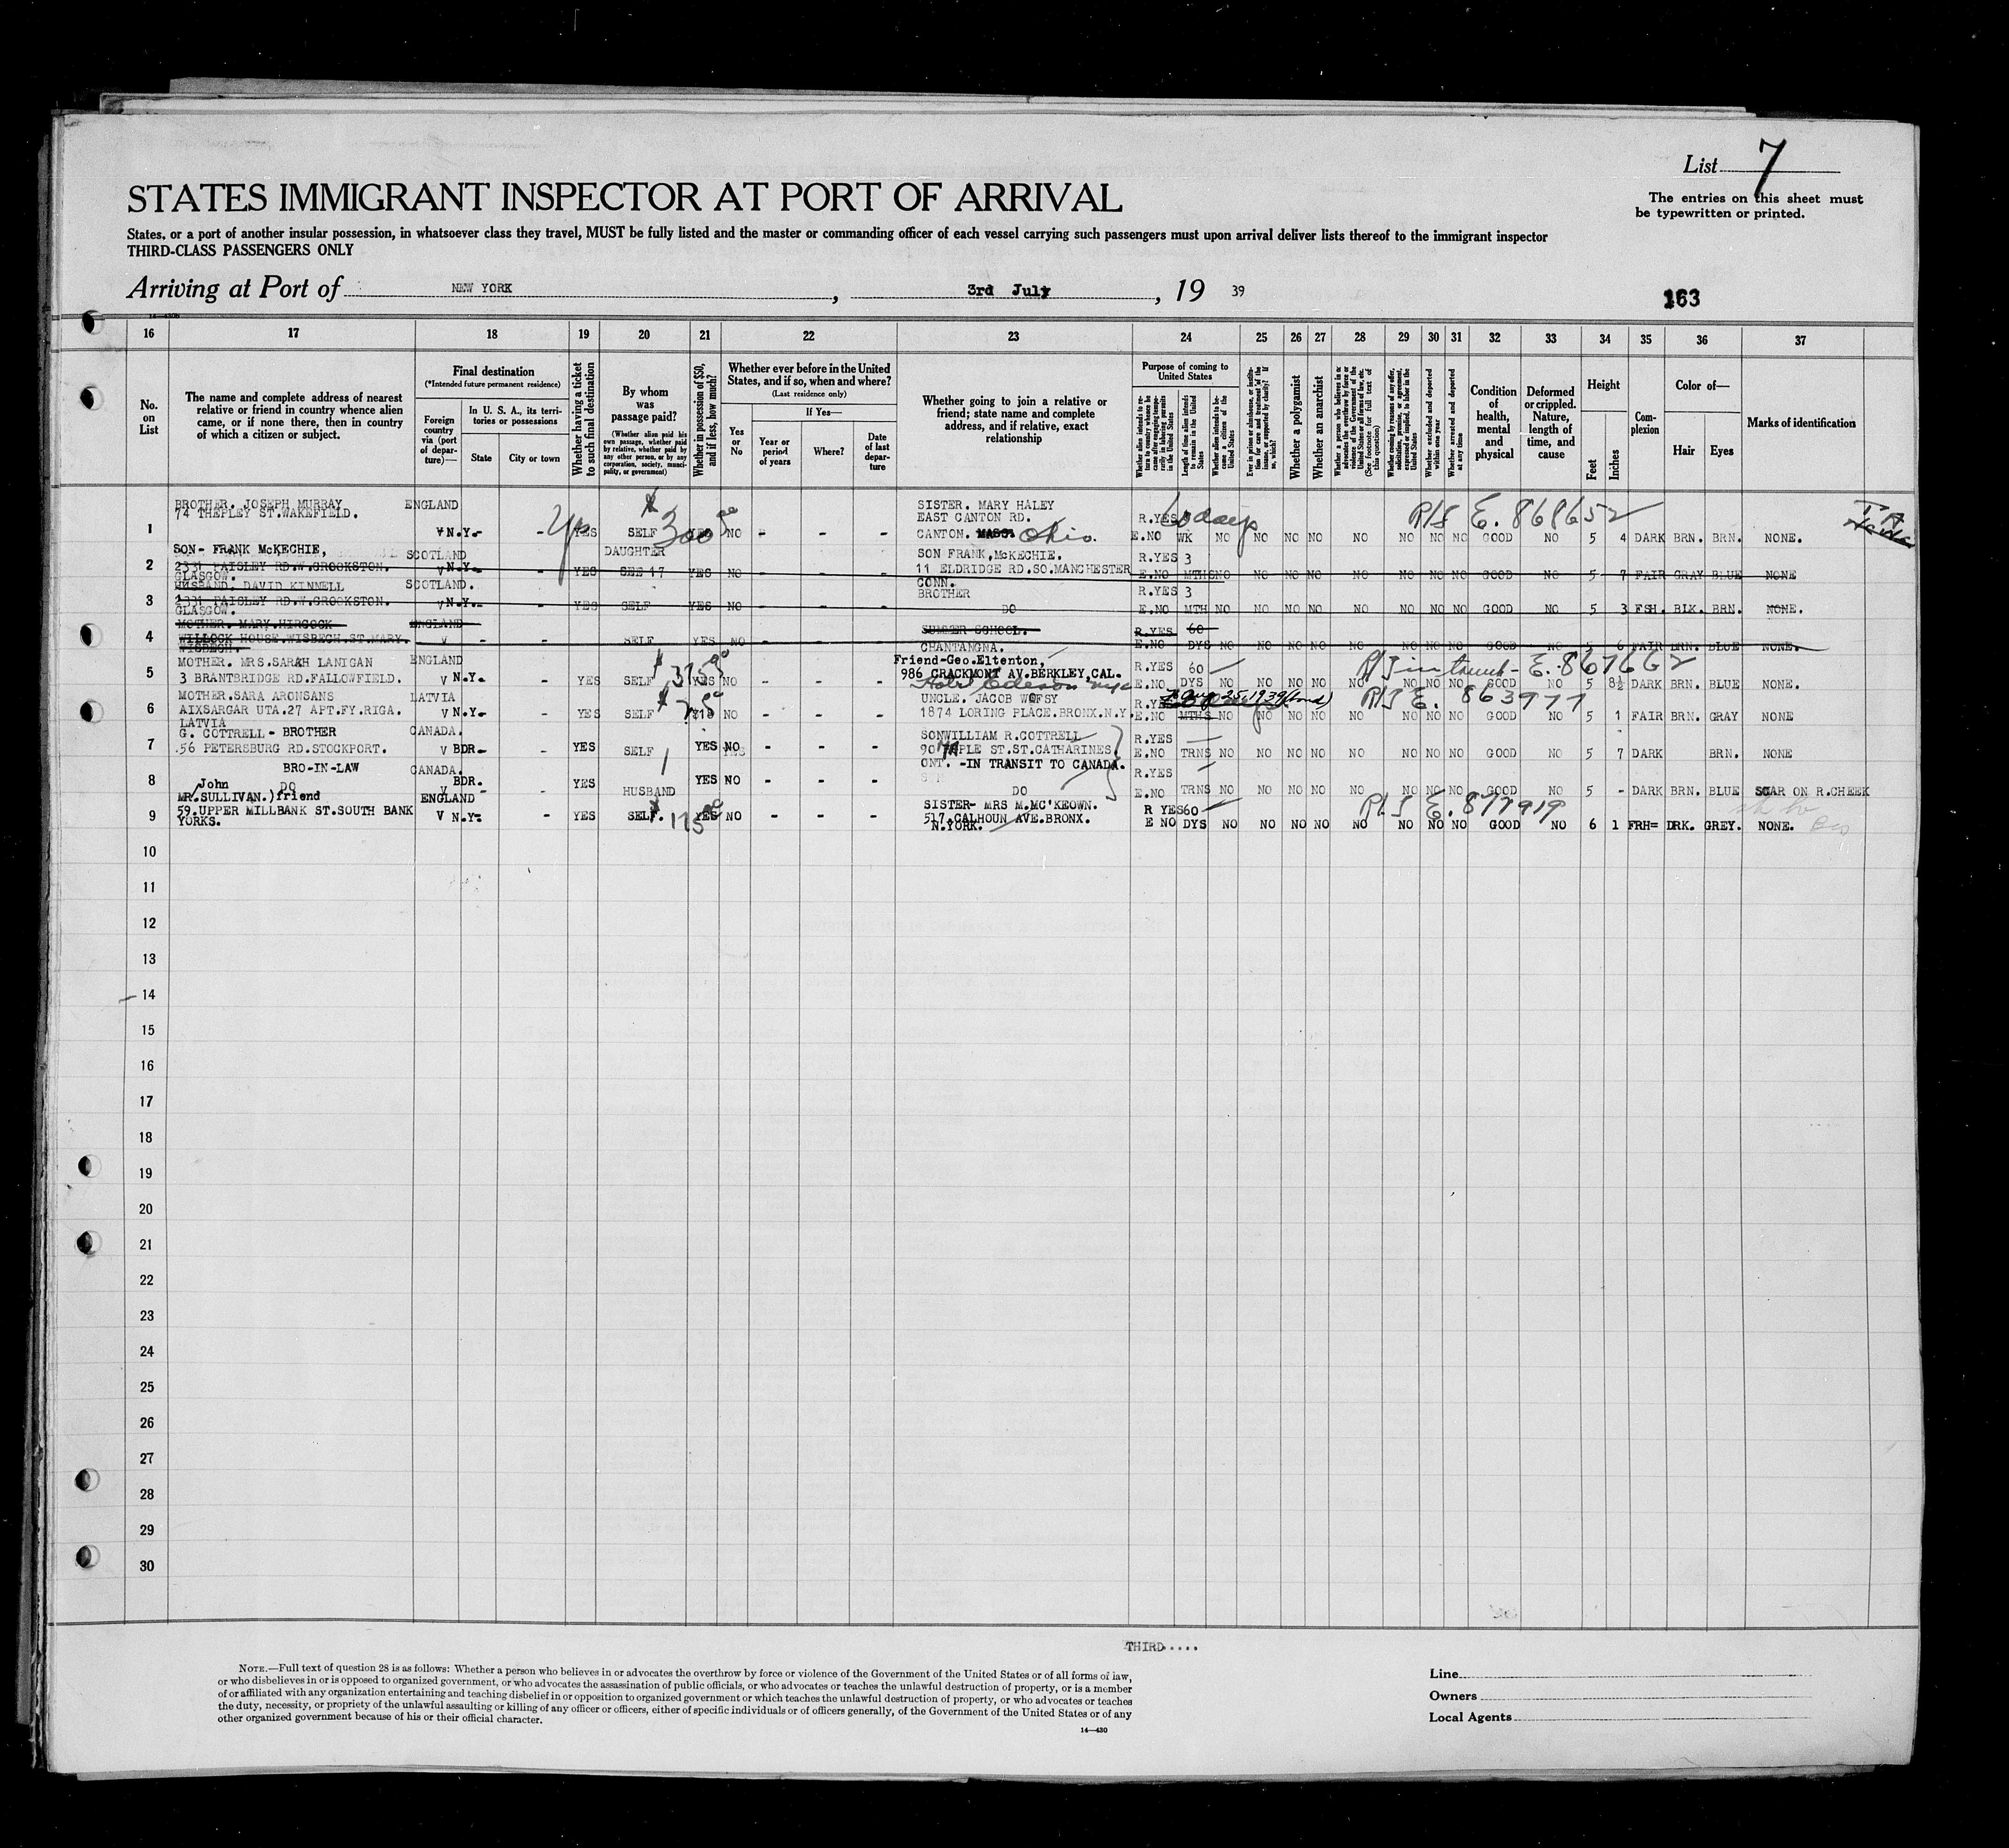 List 7
The entries on this sheet must
be typewritten or printed.
STATES IMMIGRANT INSPECTOR AT PORT OF ARRIVAL
States, or a port of another insular possession, in whatsoever class they travel, MUST be fully listed and the master or commanding officer of each vessel carrying such passengers must upon arrival deliver lists thereof to the immigrant inspector
THIRD-CLASS PASSENGERS ONLY
Arriving at Port of NEW YORK, 3rd July, 19 39
163
16 17 18 19 20 21 22 23 24 25 26 27 28 29 30 31 32 33 34 35 36 37
No. on List
The name and complete address of nearest relative or friend in country whence alien came, or if none there, then in country of which a citizen or subject.
Final destination
(*Intended future permanent residence)
Foreign country via (port of departure)—
In U. S. A., its territories or possessions
State
City or town
Whether having a ticket to such final destination
By whom was passage paid?
(Whether alien paid his own passage, whether paid by relative, whether paid by any other person, or by any corporation, society, municipality, or government)
Whether in possession of $50, and if less, how much?
Whether ever before in the United States, and if so, when and where?
(Last residence only)
Yes or No
If Yes—
Year or period of years
Where?
Date of last departure
Whether going to join a relative or friend; state name and complete address, and if relative, exact relationship
Purpose of coming to United States
Length of time alien intends to remain in the United States
Whether alien intends to become a citizen of the United States
Whether a polygamist
Whether an anarchist
Whether excluded and deported within one year
Whether arrested and deported at any time
Condition of health, mental and physical
Deformed or crippled. Nature, length of time, and cause
Height
Feet
Inches
Complexion
Color of—
Hair
Eyes
Marks of identification
BROTHER. JOSEPH MURRAY ENGLAND SISTER. MARY HALEY
74 THEPLEY ST.WAKEFIELD. EAST CANTON RD. R.YES 60 days R/S E. 868652
1 V N.Y.- - YES SELF $300 00 YES NO - - - CANTON. MASS. Ohio. E.NO WK NO NO NO NO NO NO NO NO GOOD NO 5 4 DARK BRN. BRN. NONE.
SON- FRANK McKECHIE, SCOTLAND DAUGHTER SON FRANK,McKECHIE. R.YES 3
2 2331 PAISLEY RD.W.CROOKSTON. V N.Y.- - YES SEE 17 YES NO - - - 11 ELDRIDGE RD.SO.MANCHESTER E.NO MTHS NO NO NO NO NO NO NO NO GOOD NO 5 7 FAIR GRAY BLUE NONE
GLASGOW. CONN.
HUSBAND. DAVID KINNELL SCOTLAND. BROTHER R.YES 3
3 2331 PAISLEY RD.W.CROOKSTON. V N.Y.- - YES SELF YES NO - - - DO E.NO MTH NO NO NO NO NO NO NO NO GOOD NO 5 3 FSH. BLK. BRN. NONE.
GLASGOW.
MOTHER. MARY.HIRCOCK ENGLAND SUMMER SCHOOL. R.YES 60
4 WILLOCK HOUSE.WISBECH.ST.MARY. V - - SELF YES NO - - - CHANTANGNA. E.NO DYS NO NO NO NO NO NO NO NO GOOD NO 5 6 FAIR BRN. BLUE NONE.
WISBECH.
MOTHER. MRS.SARAH LANIGAN ENGLAND Friend-Geo.Eltenton, R.YES 60 E.867662
5 3 BRANTBRIDGE RD.FALLOWFIELD. V N.Y.- - YES SELF $375 00 YES NO - - - 986 CRACKMONT AV.BERKLEY,CAL. E.NO DYS NO NO NO NO NO NO NO NO GOOD NO 5 8½ DARK BRN. BLUE NONE.
MOTHER.SARA ARONSANS LATVIA UNCLE. JACOB WOFSY R.YES Aug 25.1939 (bond) R/S E. 863977
6 AIXSARGAR UTA.27 APT.FY.RIGA. V N.Y.- - YES SELF NO - - - 1874 LORING PLACE.BRONX.N.Y. E.NO MTHS NO NO NO NO NO NO NO NO GOOD NO 5 1 FAIR BRN. GRAY NONE
LATVIA
G. COTTRELL- BROTHER CANADA. SON WILLIAM R.COTTRELL R.YES
7 56 PETERSBURG RD.STOCKPORT. V BDR- - YES SELF YES NO - - - 90 MAPLE ST.ST.CATHARINES E.NO TRNS NO NO NO NO NO NO NO NO GOOD NO 5 7 DARK BRN. NONE
ONT. -IN TRANSIT TO CANADA.
BRO-IN-LAW CANADA. R.YES
8 DO V BDR. - YES HUSBAND YES NO - - - DO E.NO TRNS NO NO NO NO NO NO NO NO GOOD NO 5 - DARK BRN. BLUE SCAR ON R.CHEEK
John
MR.SULLIVAN.)friend ENGLAND SISTER- MRS M.MC'KEOWN. R YES 60 R/S E.872919
9 59.UPPER MILLBANK ST.SOUTH BANK V N.Y- - YES SELF. $175 00 YES NO - - - 517.CALHOUN AVE.BRONX. E NO DYS NO NO NO NO NO NO NO NO GOOD NO 6 1 FRH= DRK. GREY. NONE.
YORKS. N.YORK.
10
11
12
13
14
15
16
17
18
19
20
21
22
23
24
25
26
27
28
29
30
THIRD.....
NOTE.—Full text of question 28 is as follows: Whether a person who believes in or advocates the overthrow by force or violence of the Government of the United States or of all forms of law,
or who disbelieves in or is opposed to organized government, or who advocates the assassination of public officials, or who advocates or teaches the unlawful destruction of property, or is a member
of or affiliated with any organization entertaining and teaching disbelief in or opposition to organized government or which teaches the unlawful destruction of property, or who advocates or teaches
the duty, necessity, or propriety of the unlawful assaulting or killing of any officer or officers, either of specific individuals or of officers generally, of the Government of the United States or of any
other organized government because of his or their official character.
14—430
Line
Owners
Local Agents